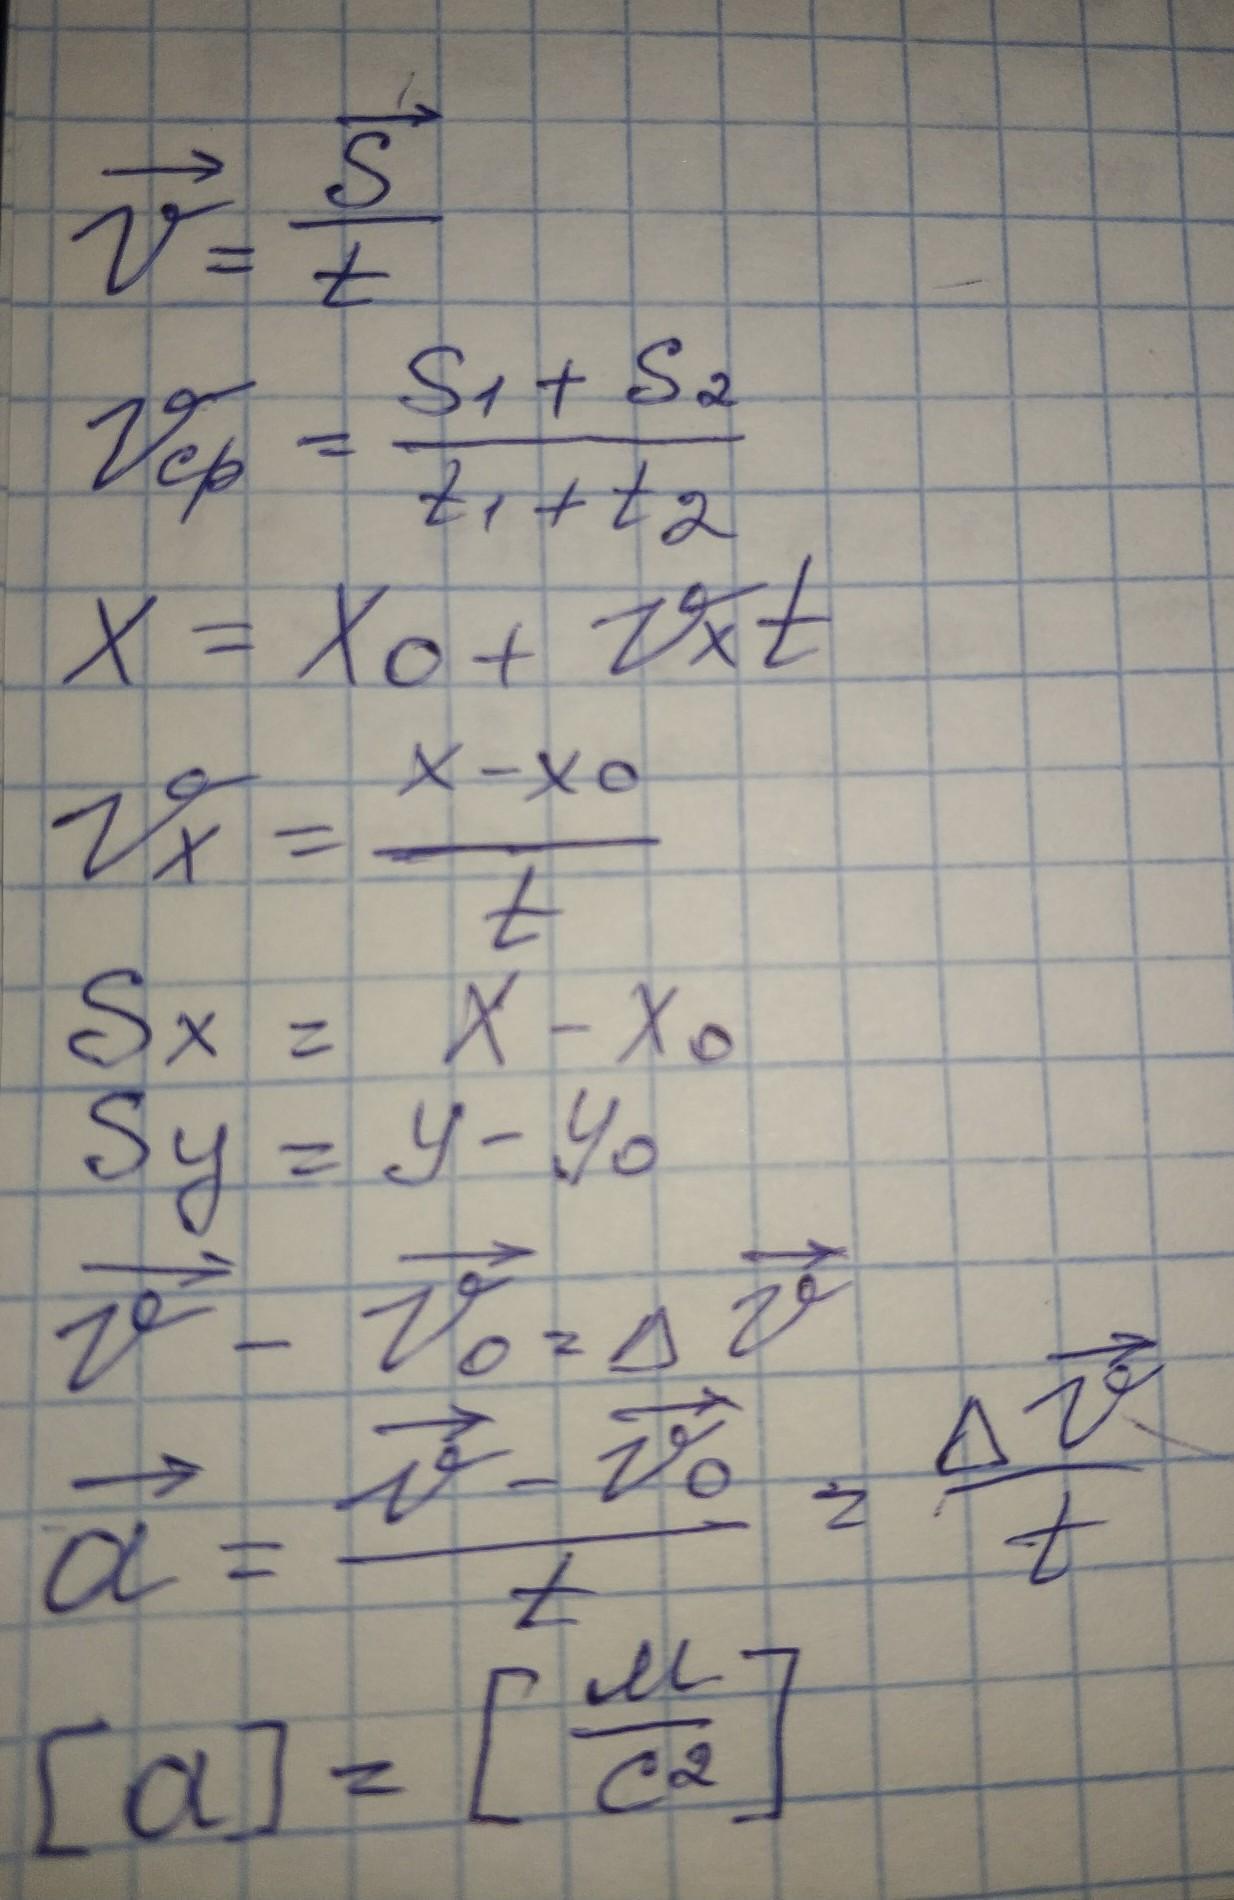 $\vec{v} = \frac{\vec{S}}{t}$
$v_{ср} = \frac{S_1 + S_2}{t_1 + t_2}$
$x = x_0 + v_x t$
$v_x = \frac{x - x_0}{t}$
$S_x = x - x_0$
$S_y = y - y_0$
$\vec{v} - \vec{v}_0 = \Delta \vec{v}$
$\vec{a} = \frac{\vec{v} - \vec{v}_0}{t} = \frac{\Delta \vec{v}}{t}$
$[a] = \left[\frac{м}{с^2}\right]$